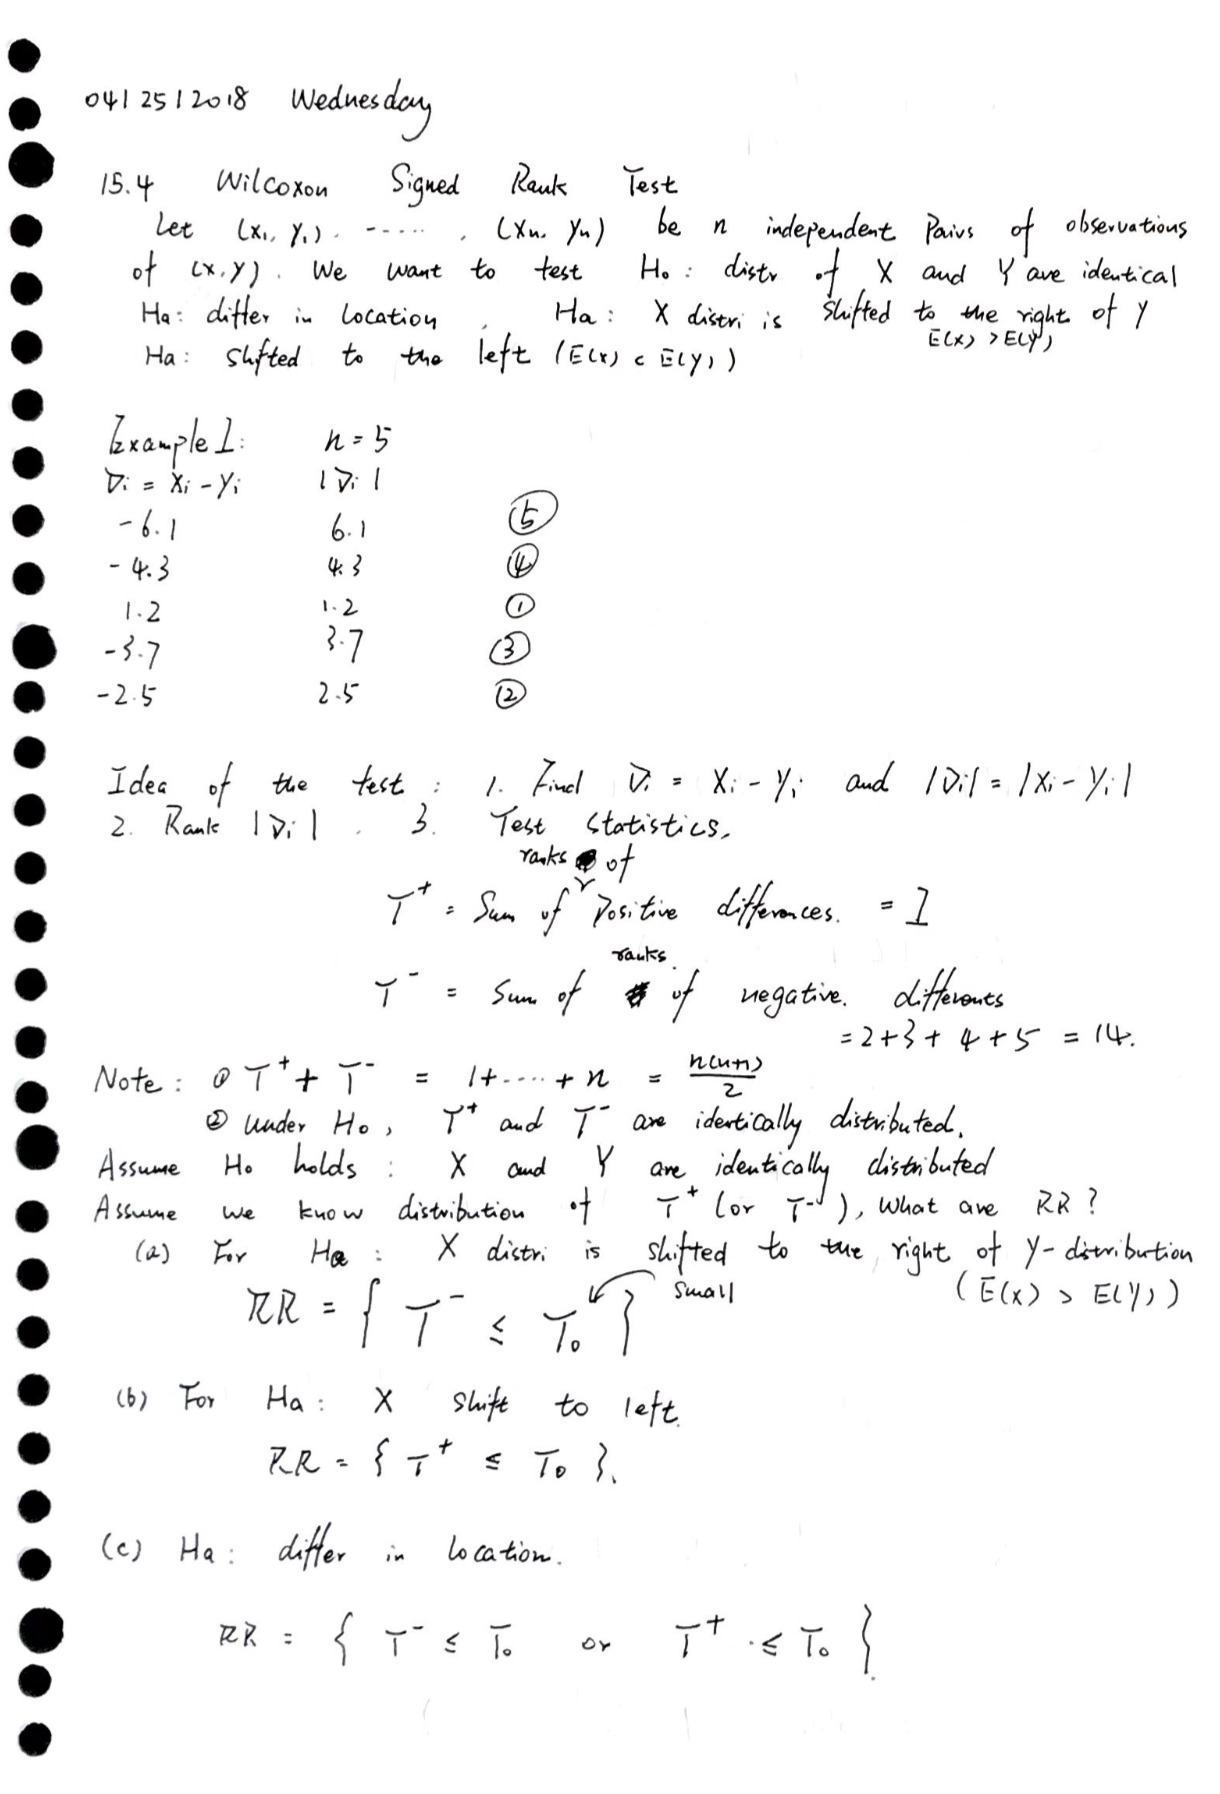 04/25/2018 Wednesday
15.4 Wilcoxon Signed Rank Test
Let (x₁, y₁), ......, (xn, yn) be n independent Pairs of observations
of (x, y). We want to test H₀: distr of X and Y are identical
Ha: differ in location. Ha: X distri is shifted to the right of Y
E(x) > E(y)
Ha: shfted to the left (E(x) < E(y))
Example 1: n = 5
Di = Xi - Yi |Di|
-6.1 6.1 ⑤
-4.3 4.3 ④
1.2 1.2 ①
-3.7 3.7 ③
-2.5 2.5 ②
Idea of the test: 1. Find Di = Xi - Yi and |Di| = |Xi - Yi|
2. Rank |Di|. 3. Test statistics.
ranks of
T⁺ = Sum of Positive differences. = 1
ranks
T⁻ = Sum of of negative. differents
= 2+3+4+5 = 14.
Note: ① T⁺ + T⁻ = 1+....+n = n(n+1)/2
② under H₀, T⁺ and T⁻ are identically distributed.
Assume H₀ holds: X and Y are identically distributed
Assume we know distribution of T⁺ (or T⁻), What are RR?
(a) For Ha: X distri is shifted to the right of Y-distribution
(E(x) > E(y))
RR = { T⁻ ≤ T₀ } small
(b) For Ha: X shift to left.
RR = { T⁺ ≤ T₀ }.
(c) Ha: differ in location.
RR = { T⁻ ≤ T₀ or T⁺ ≤ T₀ }.